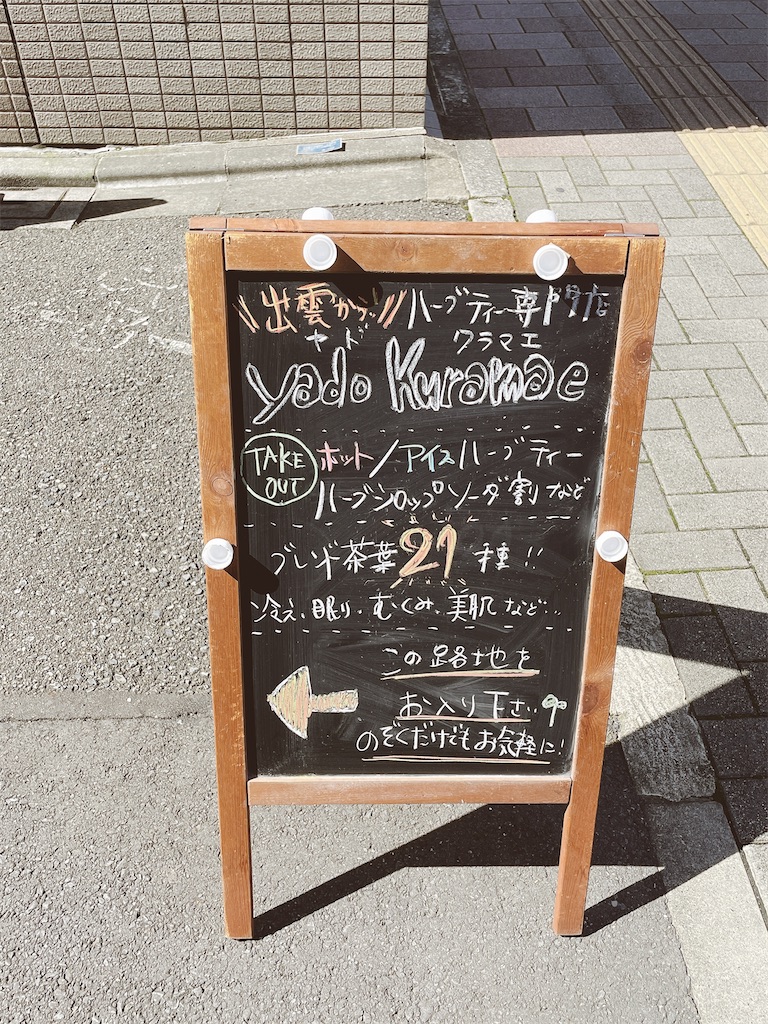 \\出雲から!!// ハーブティー専門店
ヤド クラマエ
yado Kuramae
TAKE OUT
ホット/アイスハーブティー
ハーブシロップソーダ割など
ブレンド茶葉21種!!
冷え、眠り、むくみ、美肌など…
この路地を
お入り下さい
のぞくだけでもお気軽に!